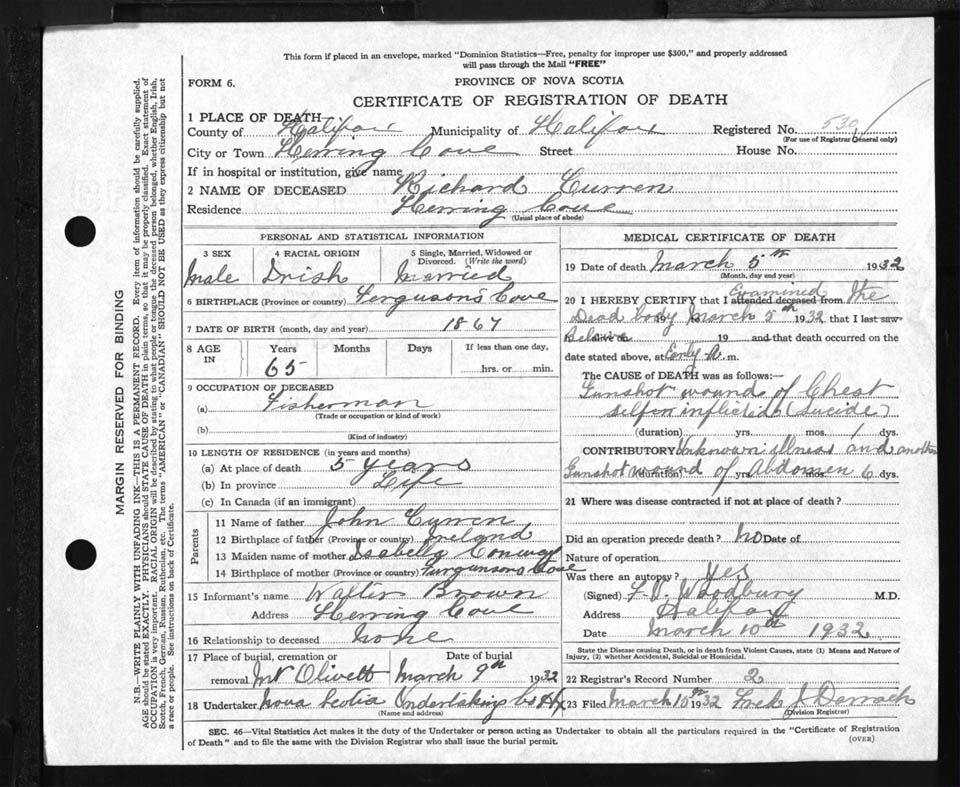 This form if placed in an envelope, marked "Dominion Statistics—Free, penalty for improper use $300," and properly addressed
will pass through the Mail "FREE"
FORM 6.
PROVINCE OF NOVA SCOTIA
CERTIFICATE OF REGISTRATION OF DEATH
1 PLACE OF DEATH
County of Halifax Municipality of Halifax Registered No. 530
(For use of Registrar General only)
City or Town Herring Cove Street House No.
If in hospital or institution, give name
2 NAME OF DECEASED Richard Curren
Residence Herring Cove
(Usual place of abode)
PERSONAL AND STATISTICAL INFORMATION
3 SEX 4 RACIAL ORIGIN 5 Single, Married, Widowed or
Divorced. (Write the word)
Male Irish Married
6 BIRTHPLACE (Province or country) Ferguson's Cove
7 DATE OF BIRTH (month, day and year) 1867
8 AGE IN Years Months Days If less than one day,
65 hrs. or min.
9 OCCUPATION OF DECEASED
(a) Fisherman
(Trade or occupation or kind of work)
(b)
(Kind of industry)
10 LENGTH OF RESIDENCE (in years and months)
(a) At place of death 5 years
(b) In province Life
(c) In Canada (if an immigrant)
Parents
11 Name of father John Curren
12 Birthplace of father (Province or country) Ireland
13 Maiden name of mother Isabella Conway
14 Birthplace of mother (Province or country) Furgunsons Cove
15 Informant's name Walter Brown
Address Herring Cove
16 Relationship to deceased none
17 Place of burial, cremation or Date of burial
removal Mt Olivett March 9th 1932
18 Undertaker Nova Scotia Undertakings Co Hfx
(Name and address)
MEDICAL CERTIFICATE OF DEATH
19 Date of death March 5th 1932
(Month, day and year)
Examined
20 I HEREBY CERTIFY that I attended deceased from the
Dead body 19 March 5th 1932 that I last saw
alive on 19 and that death occurred on the
date stated above, at Early A.m.
The CAUSE of DEATH was as follows:—
Gunshot wound of Chest
self inflicted (Suicide)
(duration) yrs. mos. 1 dys.
CONTRIBUTORY Unknown illness and another
Gunshot wound of Abdomen 6 dys.
(duration) yrs.
21 Where was disease contracted if not at place of death?
Did an operation precede death? no Date of
Nature of operation
Was there an autopsy? yes
(Signed) F. V. Woodbury M.D.
Address Halifax
Date March 10th 1932
State the Disease causing Death, or in death from Violent Causes, state (1) Means and Nature of
Injury, (2) whether Accidental, Suicidal or Homicidal.
22 Registrar's Record Number 2
23 Filed March 10th 1932 Fred J Darrach
(Division Registrar)
SEC. 46—Vital Statistics Act makes it the duty of the Undertaker or person acting as Undertaker to obtain all the particulars required in the "Certificate of Registration
of Death" and to file the same with the Division Registrar who shall issue the burial permit.
(OVER)
MARGIN RESERVED FOR BINDING
N.B.—WRITE PLAINLY WITH UNFADING INK—THIS IS A PERMANENT RECORD. Every item of information should be carefully supplied.
AGE should be stated EXACTLY. PHYSICIANS should STATE CAUSE OF DEATH in plain terms, so that it may be properly classified. Exact statement of
OCCUPATION is very important. RACIAL ORIGIN will be described by stating to what people or tongue the deceased person belonged, whether English, Irish,
Scotch, French, German, Russian, Ruthenian, etc. The terms "AMERICAN" or "CANADIAN" SHOULD NOT BE USED as they express citizenship but not
a race or people. See instructions on back of Certificate.